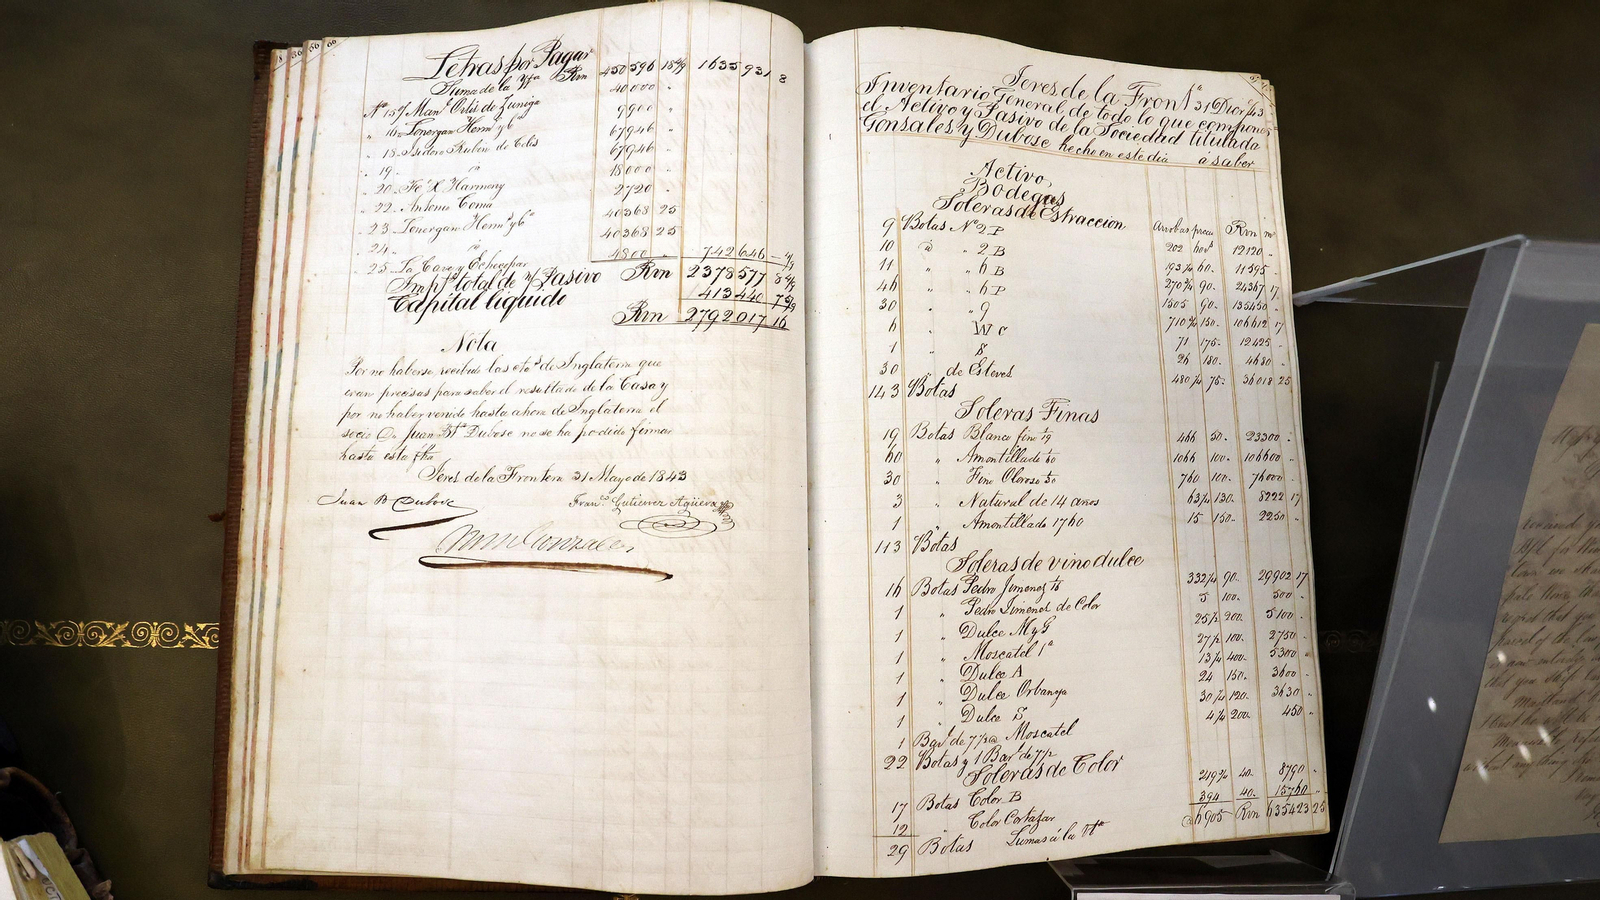 Letras por Pagar
Suma de la Vta Rvn 450596 18 1635931 8
Nº 15 Manl Ortiz de Zuñiga 40000 "
" 16 Lonergan Hermº y Cª 9900 "
" 18 Isidoro Rubin de Celis 67946 "
" 19 " id 67946 "
" 20 Fcº X. Harmony 18000 "
" 22 Antonio Coma 2720 "
" 23 Lonergan Hermº y Cª 40368 25
" 24 " id 40368 25
" 25 La Cave y Echecopar 4800 " 742646
Impte total de y Pasivo Rvn 2378577 8
Capital liquido 413440 7
Rvn 2792017 16
Nota
Por no haberse recibido las ctas de Inglaterra que
eran precisas para saber el resultado de la Casa y
por no haber venido hasta ahora de Inglaterra el
socio Dn Juan Bta Dubosc no se ha podido firmar
hasta esta fha
Jeres de la Frontera 31 Mayo de 1843
Juan B Dubosc
Franco Gutierrez Agüera
Gonzalez
Jeres de la Fronta 31 Dior
Inventario General de todo lo que compone
el Activo y Pasivo de la Sociedad titulada
Gonzales y Dubosc hecho en este dia a saber
Activo,
Bodegas
Soleras de Estraccion
Arrobas precio Rvn mr
9 Botas Nº 2 P 202 12120 "
10 id " 2 B 193¼ 60 11595 "
11 " " 6 B 270¾ 90 24367 17
46 " " 6 P 1505 90 135450 "
30 " " 9 710¾ 150 106612 17
6 " W c 71 175 12425 "
1 " 8 26 180 4680 "
30 " de Esteves 480¼ 75 36018 25
143 Botas
Soleras Finas
19 Botas Blanco fino 466 50 23300 "
60 " Amontillado 1066 100 106600 "
30 " Fino Oloroso 760 100 76000 "
3 " Natural de 14 años 63¼ 130 8222 17
1 " Amontillado 1760 15 150 2250 "
113 Botas
Soleras de vino dulce
16 Botas Pedro Jimenez 332¼ 90 29902 17
1 " Pedro Jimenes de Color 5 100 500 "
1 " Dulce M y G 25½ 200 5100 "
1 " Moscatel 1ª 27½ 100 2750 "
1 " Dulce A 13¼ 400 5300 "
1 " Dulce Orbaneja 24 150 3600 "
1 " Dulce 30¼ 120 3630 "
1 Barl de 7½ @ Moscatel 200 450 "
22 Botas y 1 Barl de 7½
Soleras de Color
17 Botas Color B 219¾ 40 8790 "
12 " Color Cortazar 394 40 15760 "
29 Botas Suma á la Vta @ 6905 Rvn 635423 25